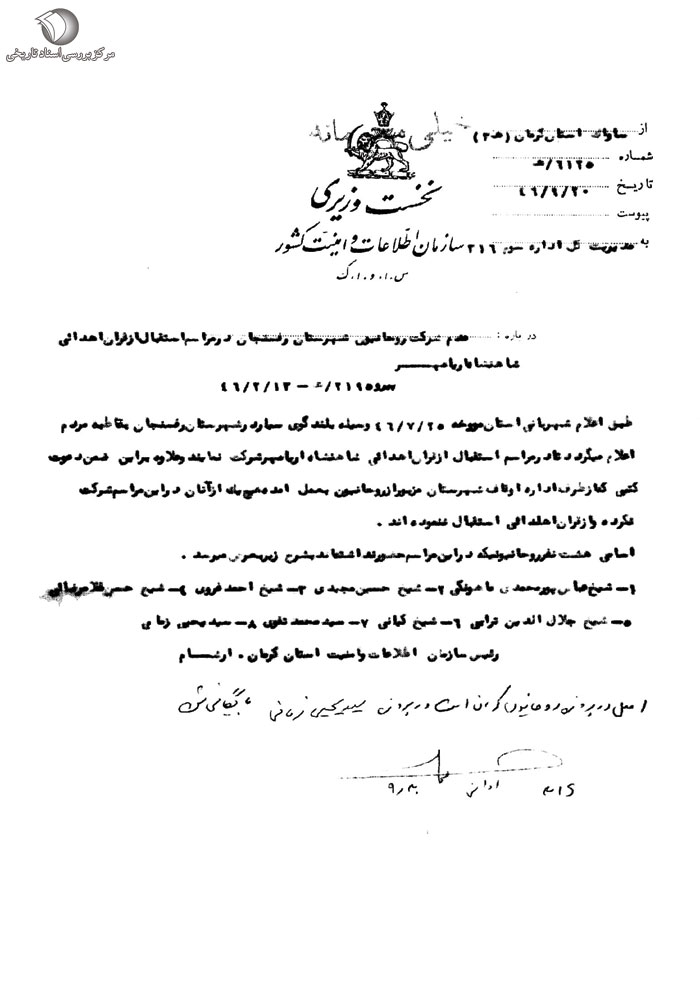 مرکز بررسی اسناد تاریخی
خیلی محرمانه
از ساواک استان کرمان (ھ۳)
شماره ۶۱۲۵/ھ
تاریخ ۴۶/۹/۲۰
پیوست
به مدیریت کل اداره سوم ۳۱۶
نخست وزیری
سازمان اطلاعات و امنیت کشور
س.ا.و.ا.ک
درباره : عدم شرکت روحانیون شهرستان رفسنجان در مراسم استقبال از قران اهدائی
شاهنشاه اریامهر
۲۱۹۵/ھ – ۴۶/۲/۱۳
طبق اعلام شهربانی استان مورخه ۴۶/۷/۲۵ وسیله بلندگوی سیار در شهرستان رفسنجان بقاطبه مردم
اعلام میگردد تا در مراسم استقبال از قران اهدائی شاهنشاه اریامهر شرکت نمایند وعلاوه براین ضمن دعوت
کتبی که از طرف اداره اوقاف شهرستان مزبور از روحانیون بعمل امده هیچیک از آنان در این مراسم شرکت
نکرده و از قران اهدائی استقبال ننموده اند .
اسامی هشت نفر روحانیونیکه در این مراسم حضور نداشته اند بشرح زیر بعرض میرسد .
۱– شیخ عباس پورمحمدی ماهونکی ۲– شیخ حسین مجیدی ۳– شیخ احمد فروی ۴– شیخ حسن
۵– شیخ جلال الدین ترابی ۶– شیخ کیانی ۷– سید محمد تقوی ۸– سید یحیی زمانی
رئیس سازمان اطلاعات و امنیت استان کرمان . ارشام
اصل در پرونده روحانیون کرمان است در پرونده سید یحیی زمانی بایگانی شود